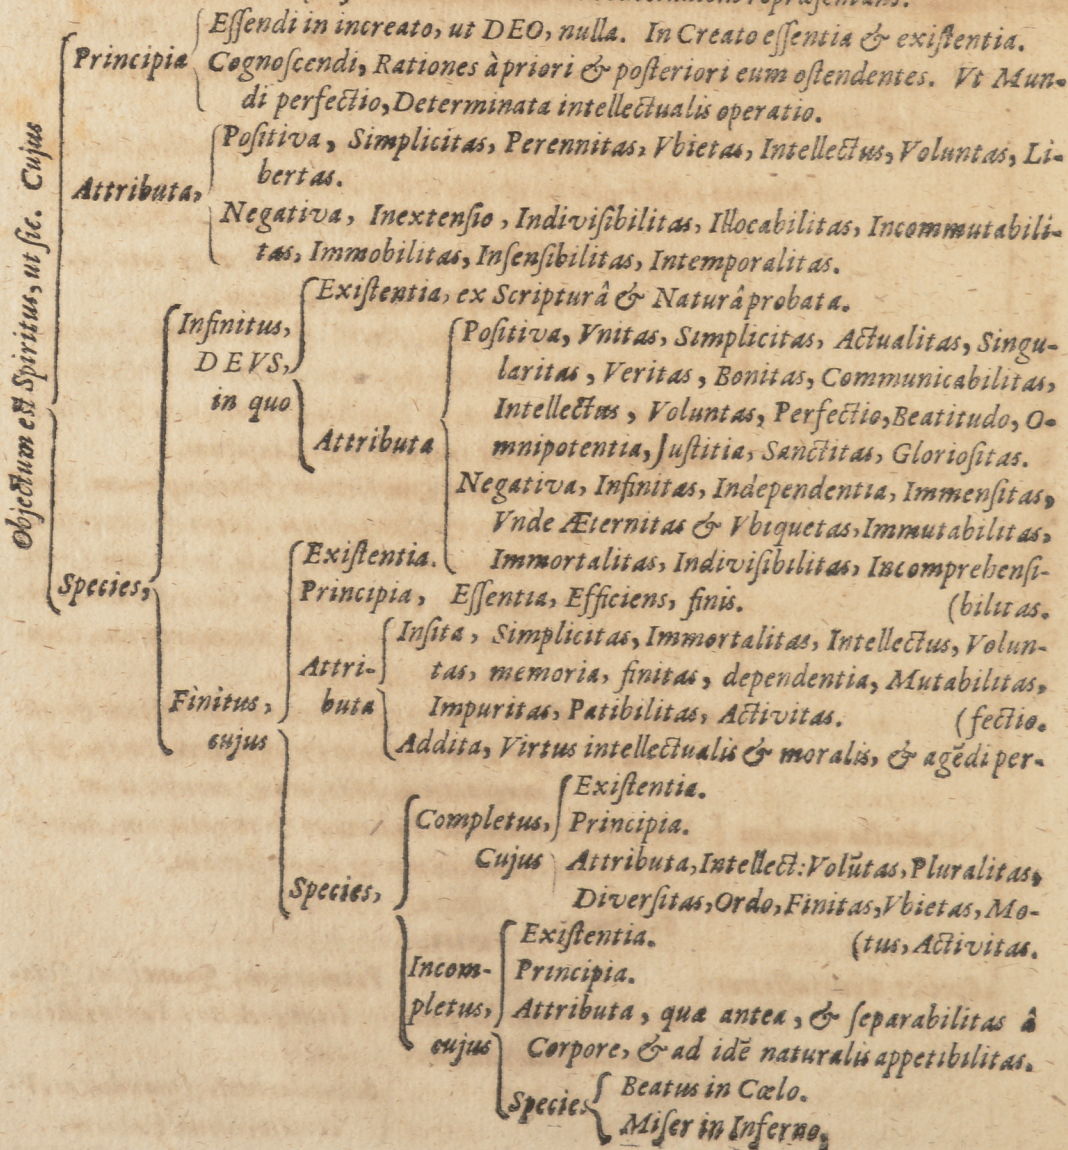 Objectum est Spiritus, ut sic. Cujus
Principia
Essendi in increato, ut DEO, nulla. In Creato essentia & existentia.
Cognoscendi, Rationes à priori & posteriori eum ostendentes. Vt Mun-
di perfectio, Determinata intellectualis operatio.
Attributa,
Positiva, Simplicitas, Perennitas, Vbietas, Intellectus, Voluntas, Li-
bertas.
Negativa, Inextensio, Indivisibilitas, Illocabilitas, Incommutabili-
tas, Immobilitas, Insensibilitas, Intemporalitas.
Species,
Infinitus,
DEVS,
in quo
Existentia, ex Scripturâ & Naturâ probata.
Attributa
Positiva, Vnitas, Simplicitas, Actualitas, Singu-
laritas, Veritas, Bonitas, Communicabilitas,
Intellectus, Voluntas, Perfectio, Beatitudo, O-
mnipotentia, Justitia, Sanctitas, Gloriositas.
Negativa, Infinitas, Independentia, Immensitas,
Vnde Æternitas & Vbiquetas, Immutabilitas,
Immortalitas, Indivisibilitas, Incomprehensi-
(bilitas.
Finitus,
cujus
Existentia.
Principia, Essentia, Efficiens, finis.
Attri-
buta
Insita, Simplicitas, Immortalitas, Intellectus, Volun-
tas, memoria, finitas, dependentia, Mutabilitas,
Impuritas, Patibilitas, Activitas.
(fectio.
Addita, Virtus intellectualis & moralis, & agēdi per-
Species,
Completus,
Cujus
Existentia.
Principia.
Attributa, Intellect: Volūtas, Pluralitas,
Diversitas, Ordo, Finitas, Vbietas, Mo-
(tus, Activitas.
Incom-
pletus,
cujus
Existentia.
Principia.
Attributa, quæ antea, & separabilitas â
Corpore, & ad idē naturalis appetibilitas.
Species
Beatus in Cœlo.
Miser in Inferno,